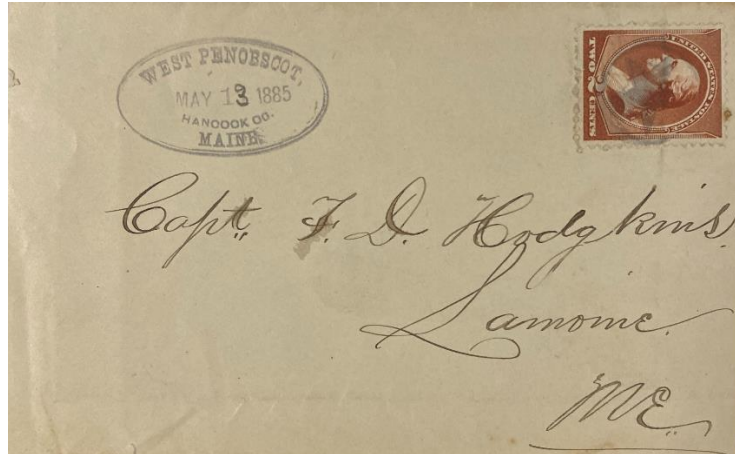 WEST PENOBSCOT,
MAY 13 1885
HANCOCK CO.
MAINE.
UNITED STATES POSTAGE
TWO 2 CENTS
Capt. F. D. Hodgkins.
Lamoine.
ME.